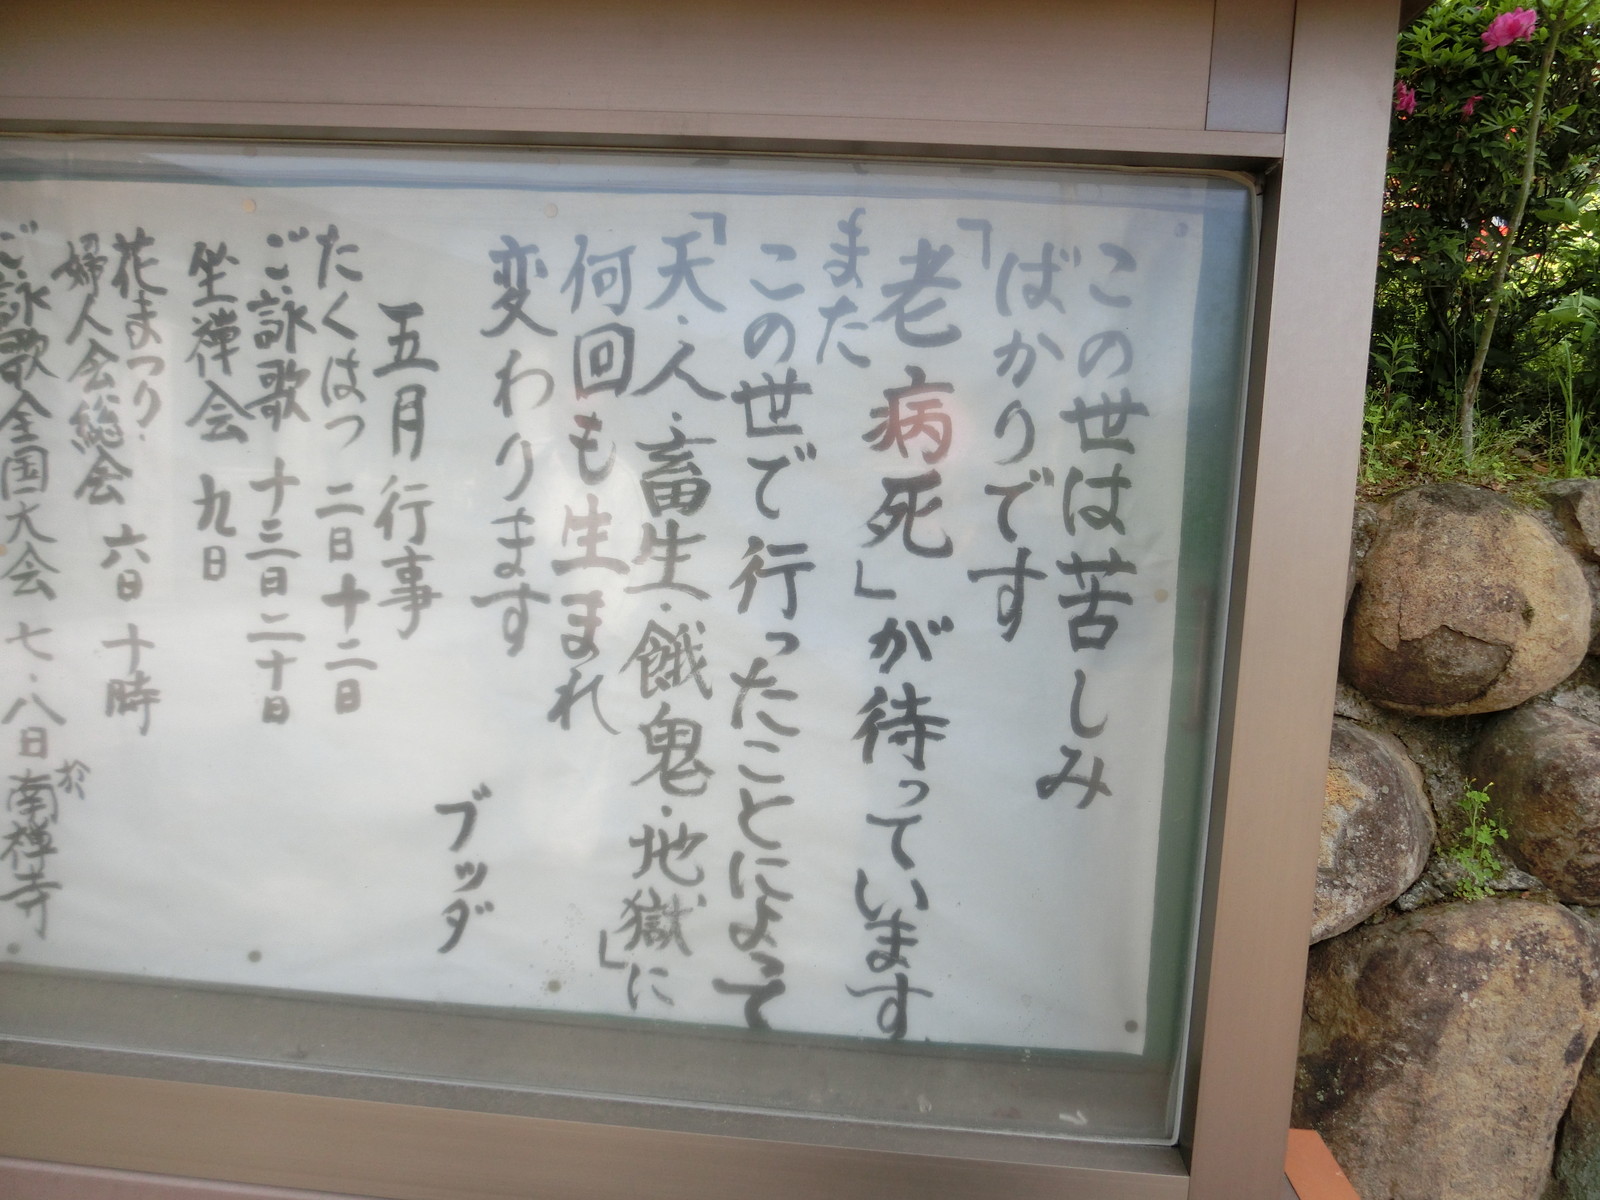 この世は苦しみ
ばかりです
「老病死」が待っています
また
この世で行ったことによって
「天・人・畜生・餓鬼・地獄」に
何回も生まれ
変わります
ブッダ
五月行事
たくはつ 二日十二日
ご詠歌 十三日二十日
坐禅会 九日
花まつり
婦人会総会 六日 十時
ご詠歌全国大会 七・八日 於南禅寺